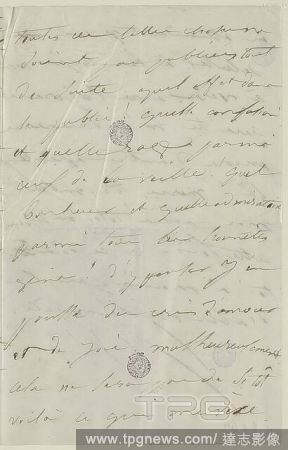 toutes ces belles choses ne
soient pas publiées tout
de suite quel effet dans
le public! quelle confusion
et quelle rage parmi
ceux de la veille. quel
bonheur et quelle admiration
parmi tous les honnêtes
gens! d'y penser j'en
pousse des cris d'amour
et de joie. malheureusement
cela ne sera pas de si tôt
voilà ce qui me
TPG
www.tpgnews.com / 達志影像